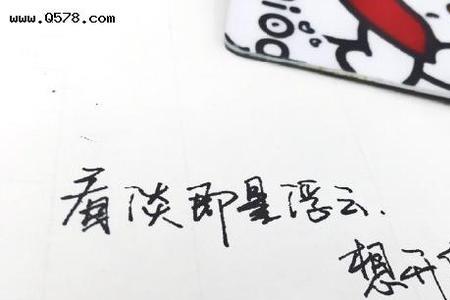 www.Q578.com
看淡即是浮云.
想开